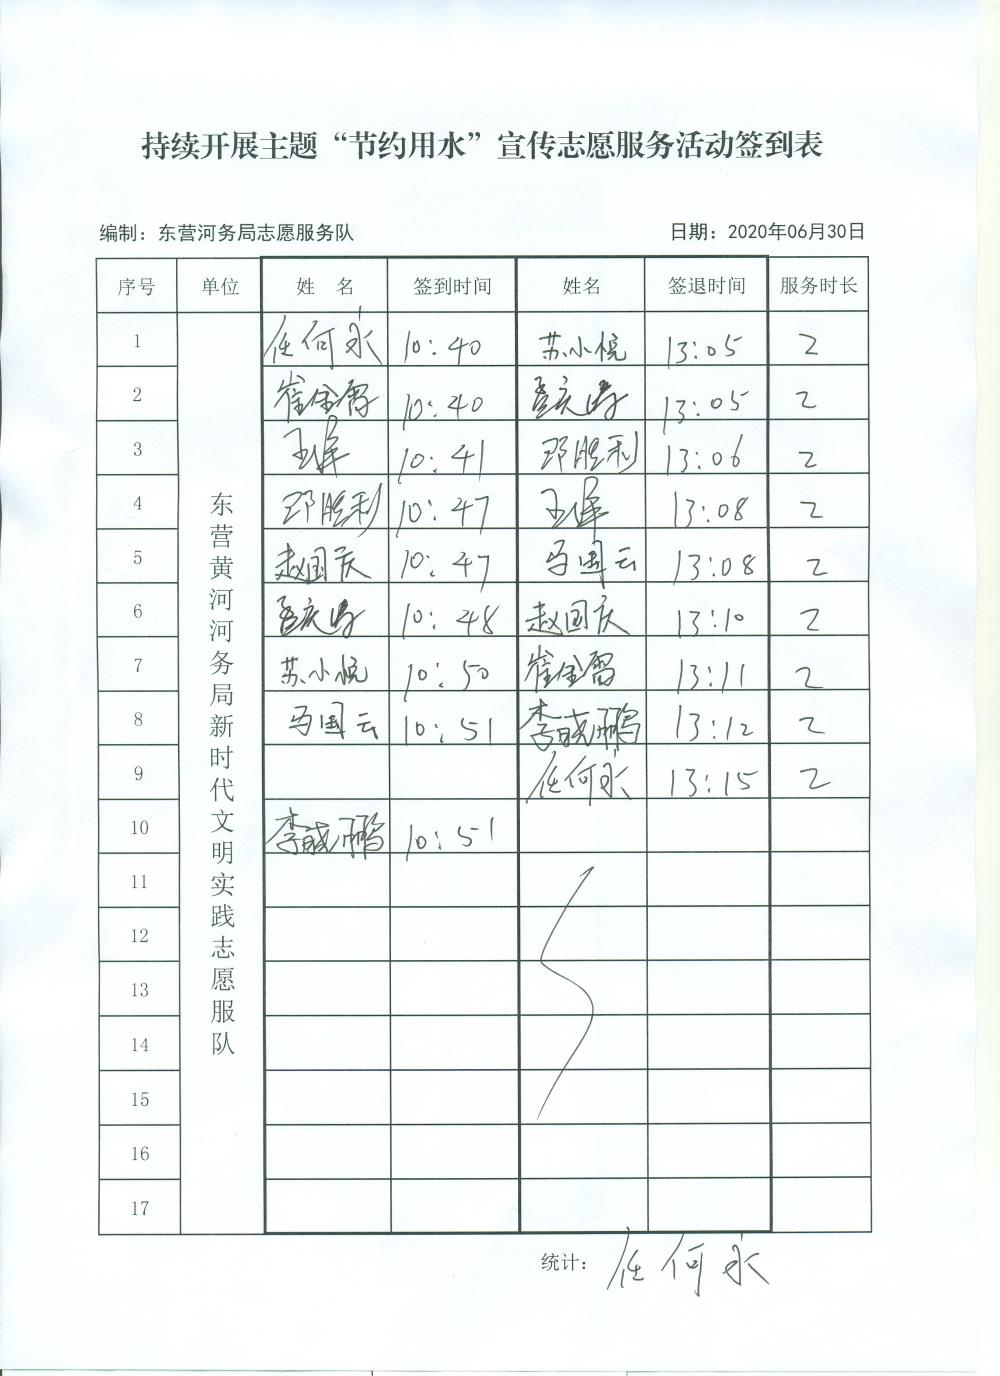 持续开展主题“节约用水”宣传志愿服务活动签到表
编制：东营河务局志愿服务队 日期：2020年06月30日
序号 单位 姓 名 签到时间 姓名 签退时间 服务时长
东营黄河河务局新时代文明实践志愿服队
1 任何永 10:40 苏小悦 13:05 2
2 崔金霄 10:40 孟庆涛 13:05 2
3 王峰 10:41 邓胜利 13:06 2
4 邓胜利 10:47 王峰 13:08 2
5 赵国庆 10:47 马国云 13:08 2
6 孟庆涛 10:48 赵国庆 13:10 2
7 苏小悦 10:50 崔金霄 13:11 2
8 马国云 10:51 李晓鹏 13:12 2
9 任何永 13:15 2
10 李晓鹏 10:51
11
12
13
14
15
16
17
统计： 任何永